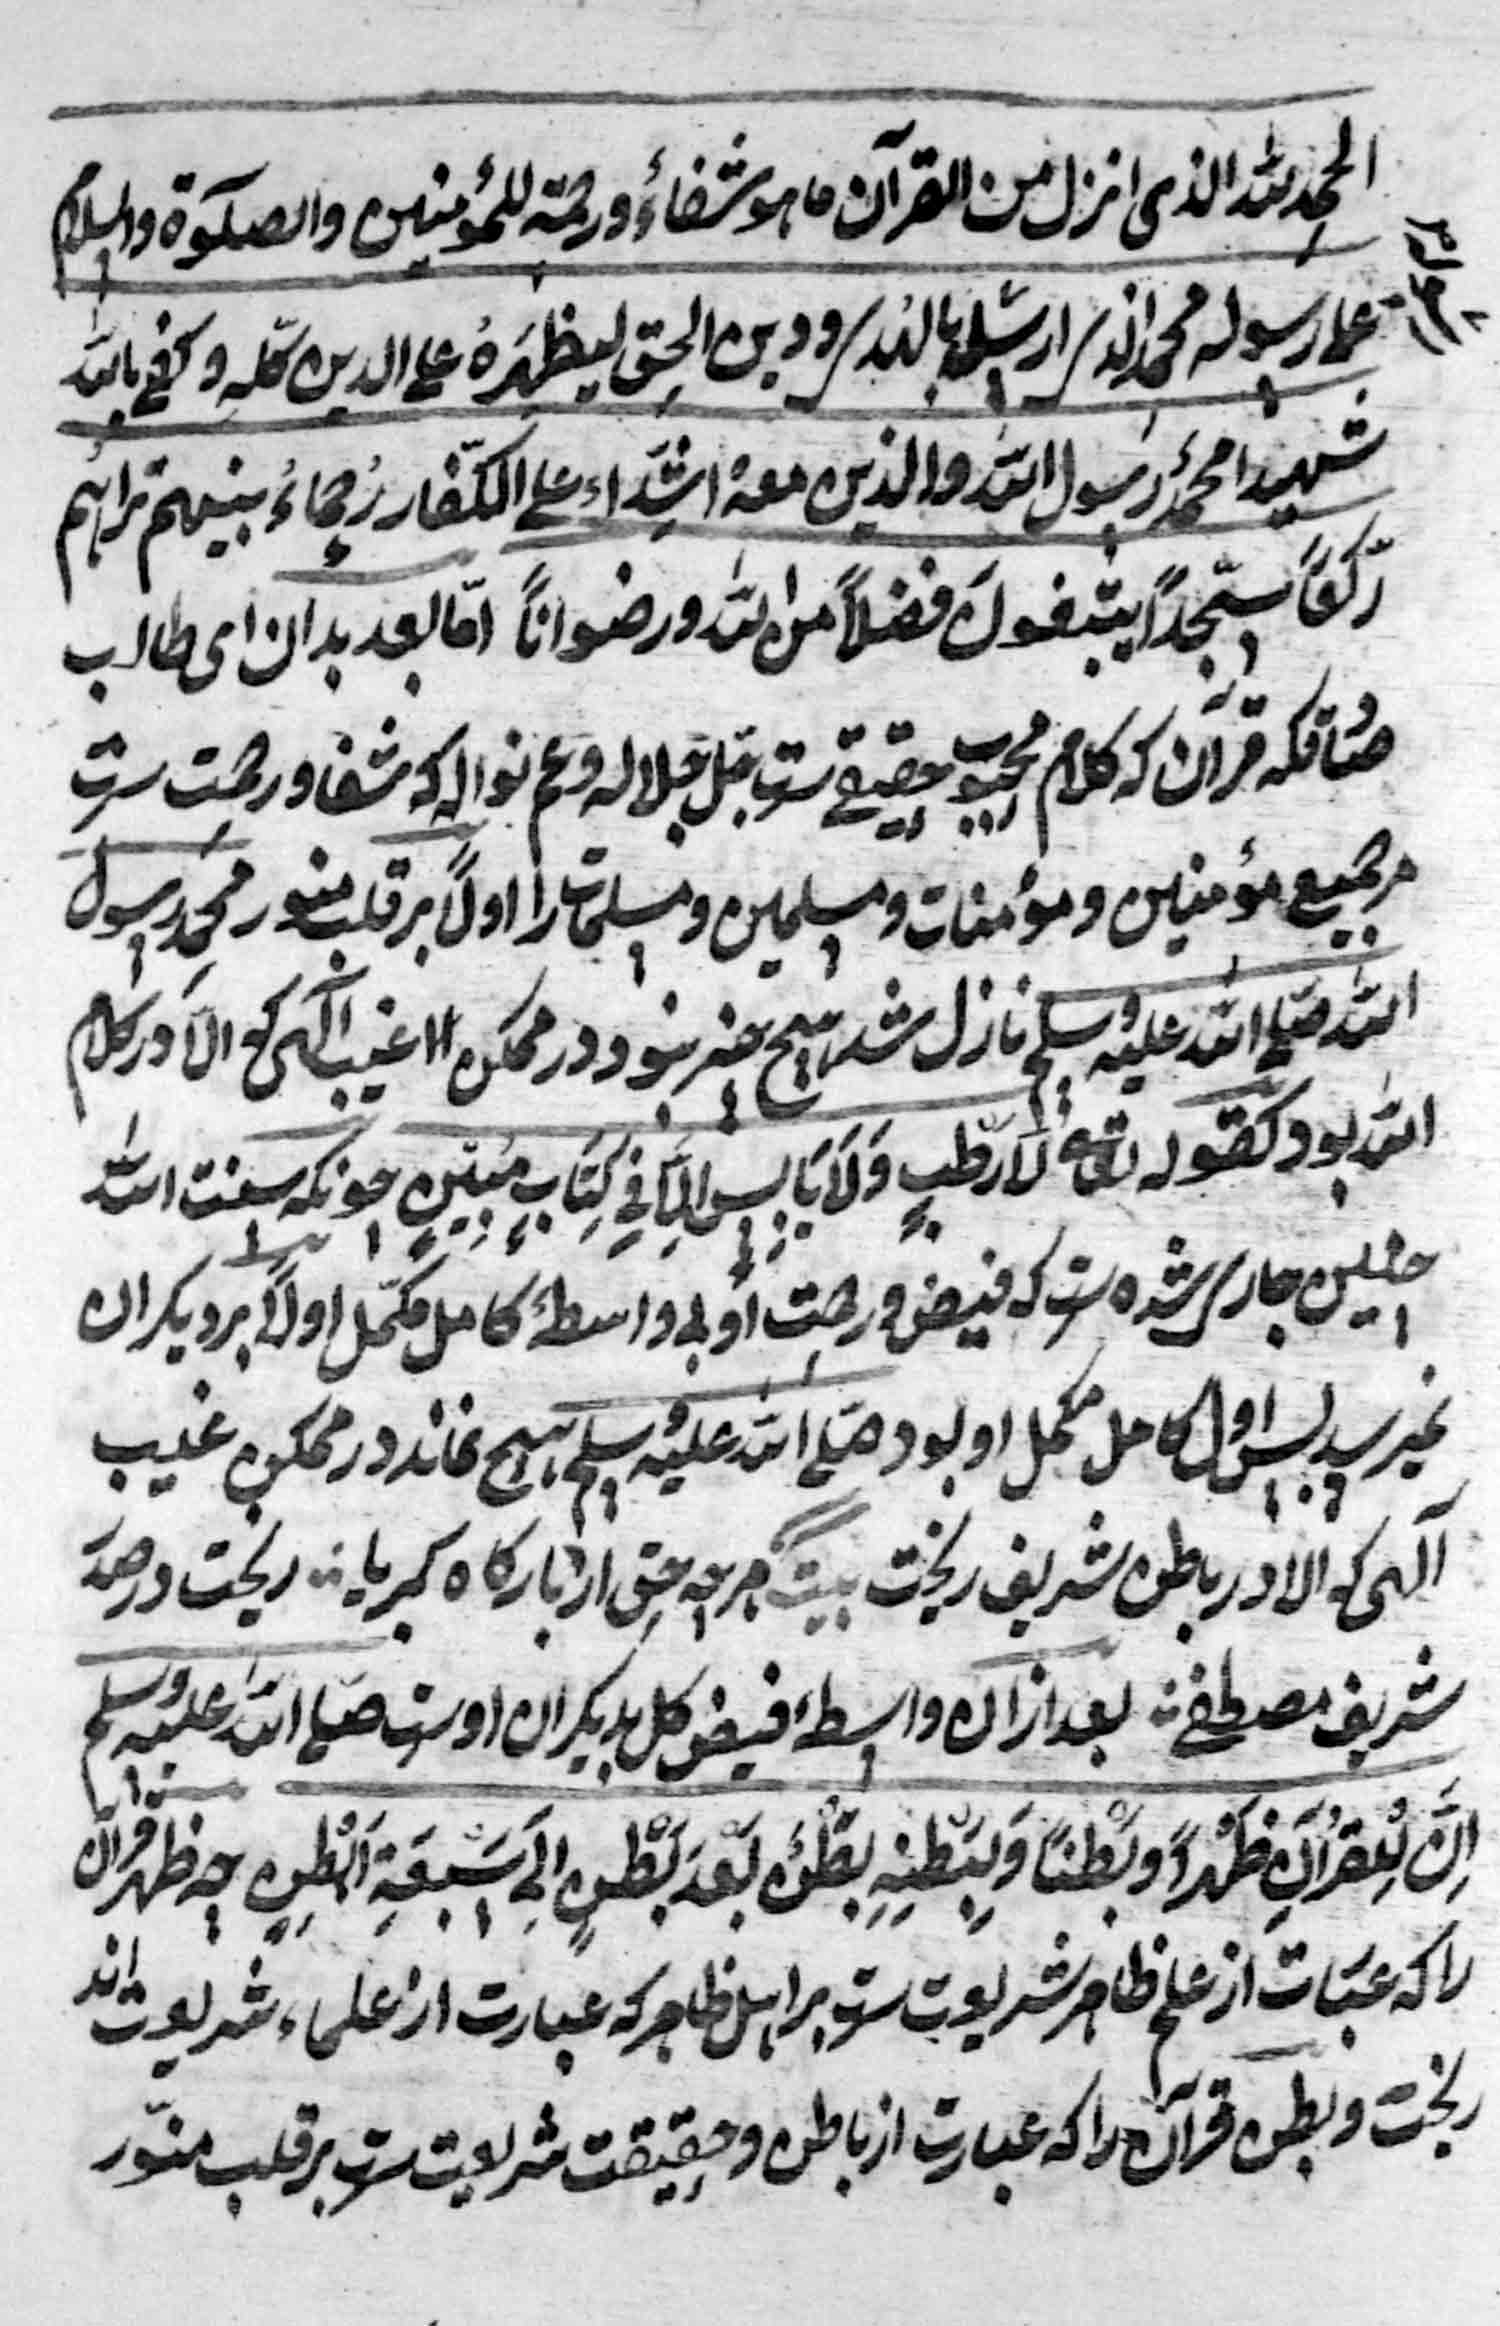 الحمد لله الذی انزل من القرآن ما هو شفاءٌ ورحمة للمؤمنین والصلوة والسلام
علی رسوله محمد الذی ارسله بالهدی ودین الحق لیظهرهُ علی الدین کلّهِ وکفی بالله
شهیدا محمدٌ رسول الله والذین معهٗ اشدّاء علی الکفّار رُحماءُ بینهم تراهُم
رکّعًا سجّدًا یبتغونَ فضلاً من الله ورضوانًا امّا بعد بدان ای طالب
صادق که قرآن که کلام محبوب حقیقی ست جل جلاله وعم نواله که شفا ورحمت ست
مر جمیع مؤمنین ومؤمنات ومسلمین ومسلمات را اولاً بر قلب منور محمد رسول
الله صلی الله علیه وسلم نازل شد هیچ چیز نبود در ممکن از غیب الٰهی که الّا در کلام
الله بود کقوله تعالی لَا رَطْبٍ وَلَا یَابِسٍ اِلَّا فِی کِتَابٍ مُبِینٍ چونکه سنت الله
چنین جاری شده ست که فیض ورحمت او بی واسطهٔ کامل مکمّل اولاً بر دیگران
نمیرسد پس اول کامل مکمل او بود صلی الله علیه وسلم هیچ نماند در ممکن غیب
آلهی که الا در باطن شریف ریخت بیت هر چه حق از بارکاه کبریا ؞ ریخت در صدر
شریف مصطفی ؞ بعد از آن واسطهٔ فیض کل بدیگران اوست صلی الله علیه وسلم
اِنَّ لِلْقُرْآنِ ظَهْرًا وَبَطْنًا وَلِبَطْنِهِ بَطْنٌ بَعْدَ بَطْنٍ اِلَی سَبْعَةِ اَبْطُنٍ چه ظهر قرآن
را که عبارت از علم ظاهر شریعت ست بر اهل ظاهر که عبارت از علماء شریعت اند
ریخت وبطن قرآن را که عبارت از باطن وحقیقت شریعت ست بر قلب منوّر